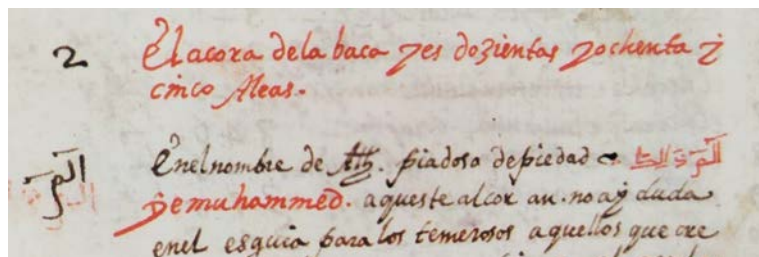 2 El açora dela baca 7 es dozientas 7 ochenta i
cinco Aleas.
الٓمٓ
Enel nombre de Allh. piadoso de piedad الٓمٓ ذَٰلِكَ
ye muhammed. aqueste alcor an. no ay duda
enel es guia para los temerosos aquellos que cre